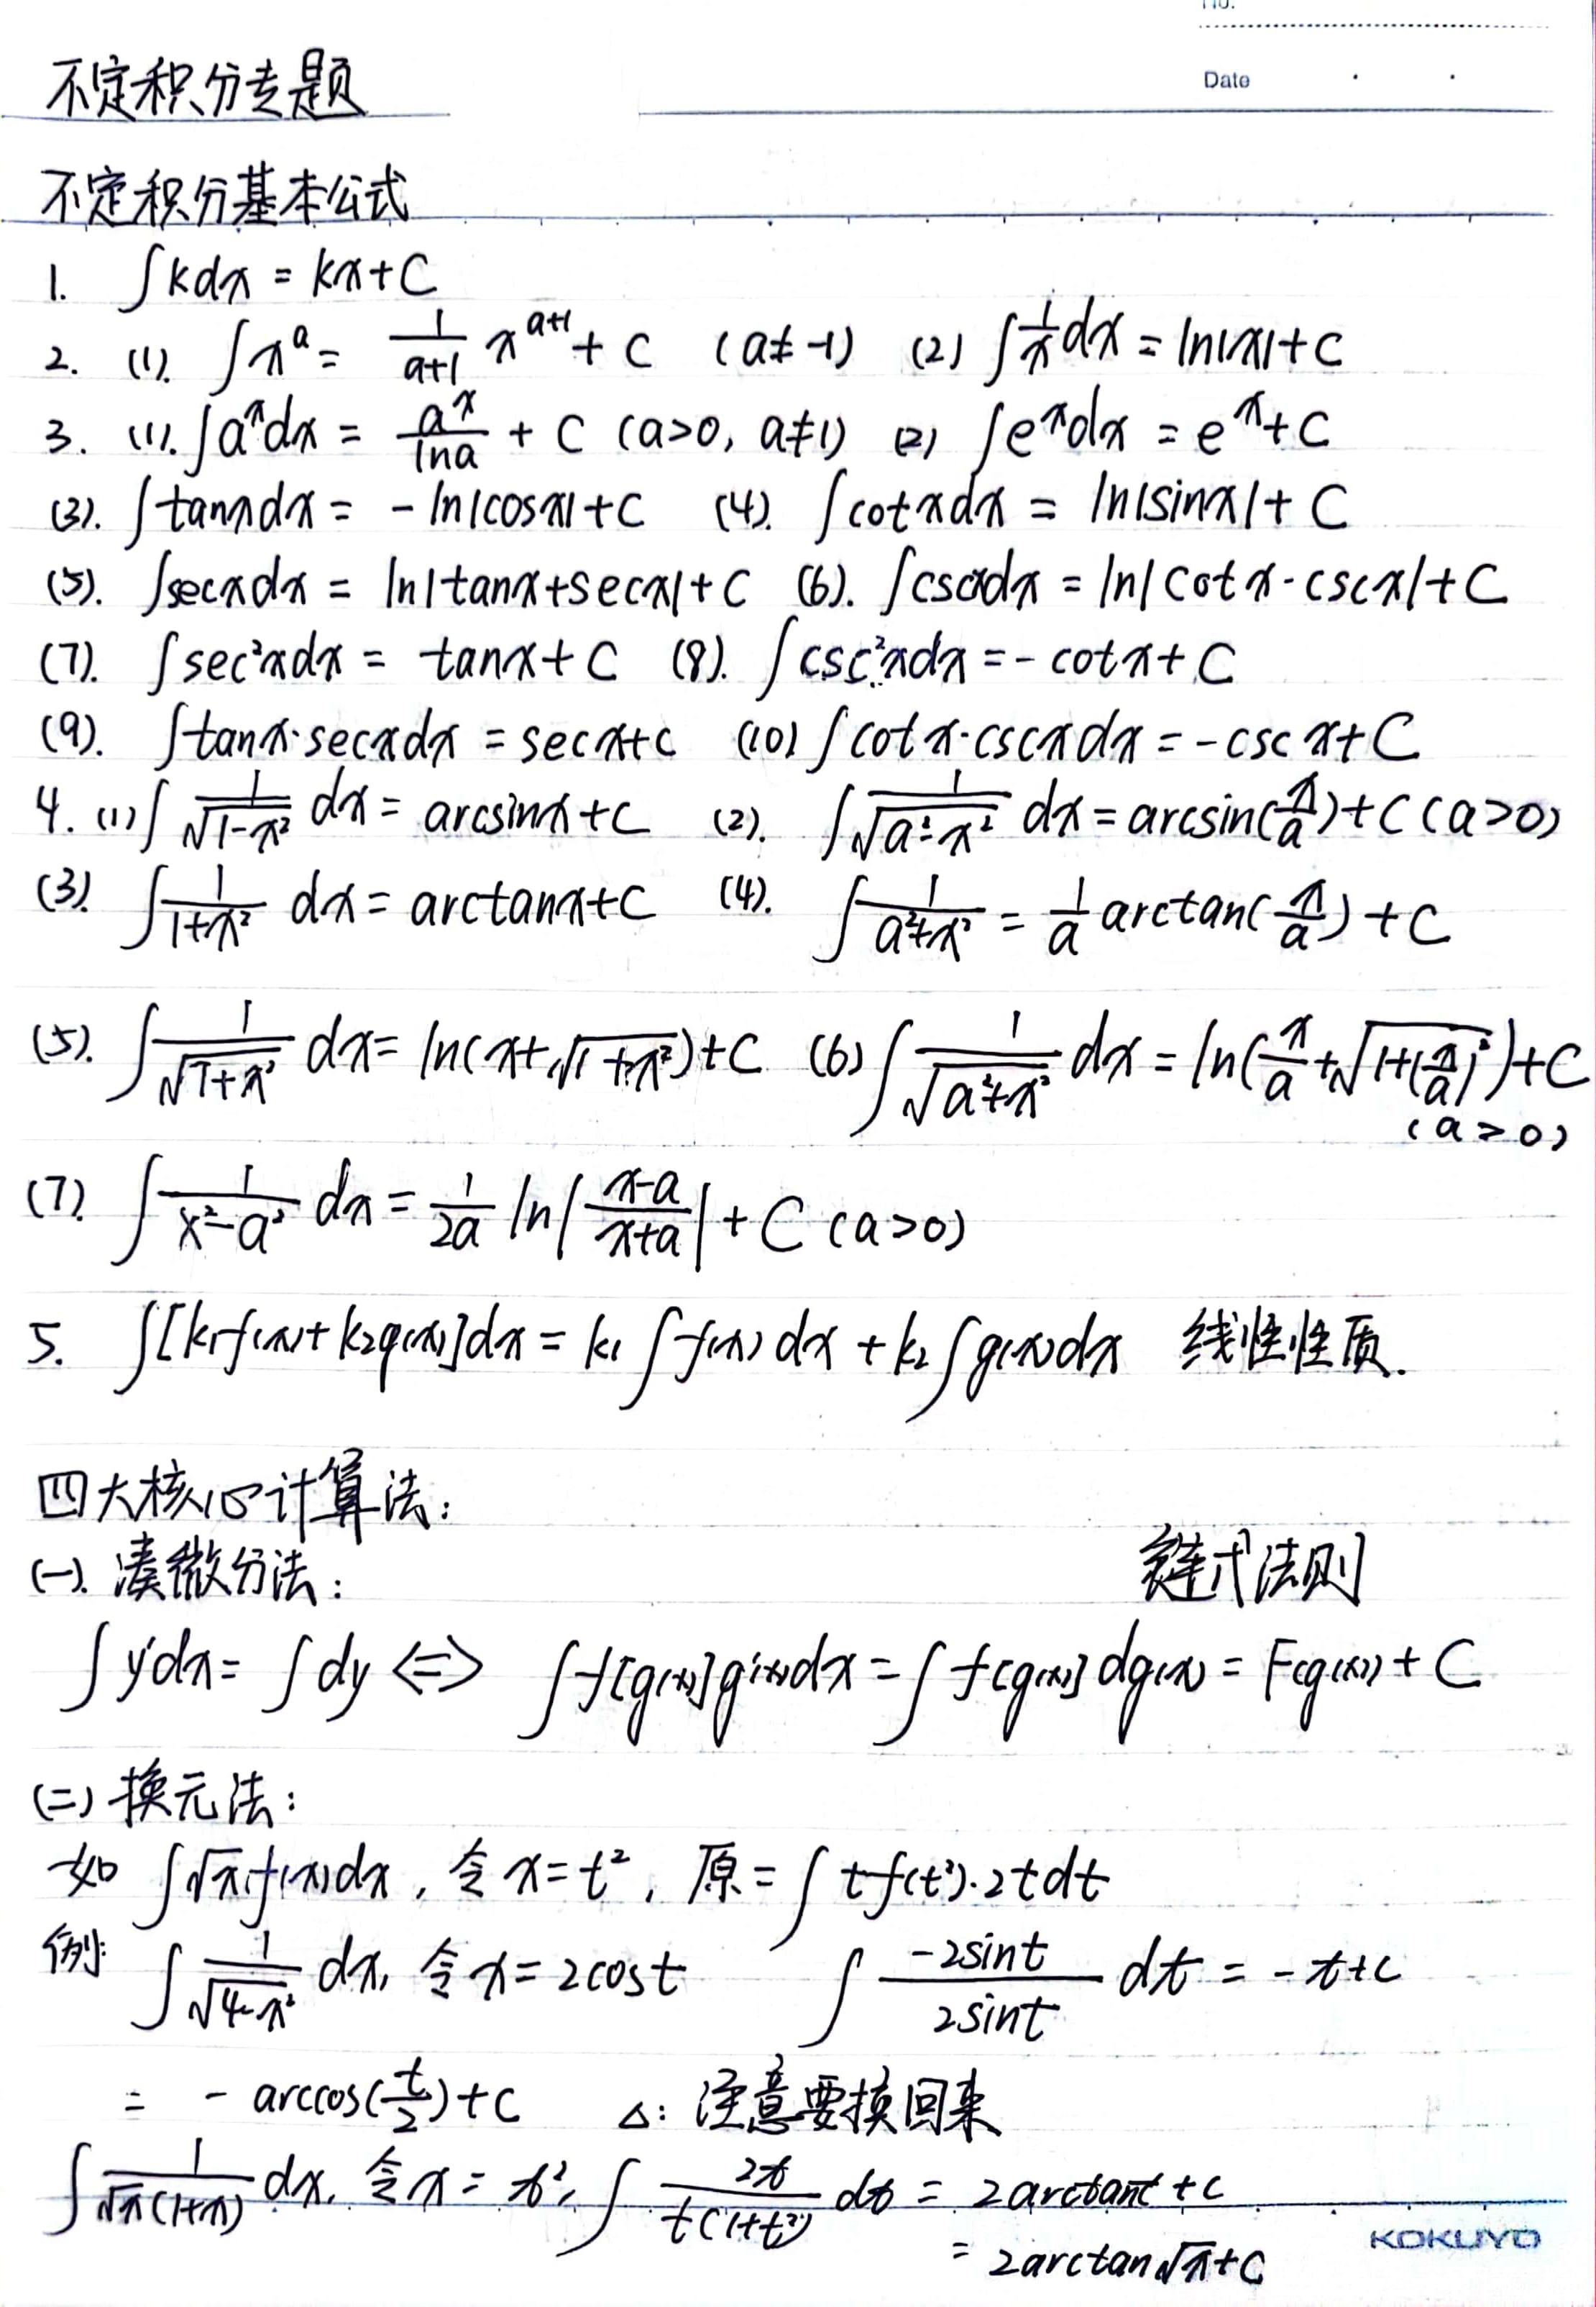 No.
Date
不定积分专题
不定积分基本公式
1. ∫kdx = kx+C
2. (1). ∫x^a = 1/(a+1) x^(a+1) + C (a≠-1) (2) ∫1/x dx = ln|x|+C
3. (1). ∫a^x dx = a^x/lna + C (a>0, a≠1) (2) ∫e^x dx = e^x+C
(3). ∫tanxdx = -ln|cosx|+C (4). ∫cotxdx = ln|sinx|+C
(5). ∫secxdx = ln|tanx+secx|+C (6). ∫cscxdx = ln|cotx-cscx|+C
(7). ∫sec²xdx = tanx+C (8). ∫csc²xdx = -cotx+C
(9). ∫tanx·secxdx = secx+C (10) ∫cotx·cscxdx = -cscx+C
4. (1) ∫1/√(1-x²) dx = arcsinx+C (2). ∫1/√(a²-x²) dx = arcsin(x/a)+C (a>0)
(3). ∫1/(1+x²) dx = arctanx+C (4). ∫1/(a²+x²) = 1/a arctan(x/a)+C
(5). ∫1/√(1+x²) dx = ln(x+√(1+x²))+C (6) ∫1/√(a²+x²) dx = ln(x/a+√(1+(x/a)²))+C
(a>0)
(7). ∫1/(x²-a²) dx = 1/(2a) ln|(x-a)/(x+a)| + C (a>0)
5. ∫[k₁f(x)+k₂g(x)]dx = k₁∫f(x)dx + k₂∫g(x)dx 线性性质.
四大核心计算法:
(一). 凑微分法: 链式法则
∫y'dx = ∫dy ⇔ ∫f[g(x)]g'(x)dx = ∫f[g(x)]dg(x) = F(g(x)) + C
(二) 换元法:
如 ∫√x f(x)dx, 令 x=t², 原=∫tf(t²)·2tdt
例: ∫1/√(4-x²) dx, 令 x=2cost ∫(-2sint)/(2sint) dt = -t+C
= -arccos(t/2)+C △: 注意要换回来
∫1/(√x(1+x)) dx, 令 x=t², ∫2t/(t(1+t²)) dt = 2arctant+C
= 2arctan√x+C
KOKUYO